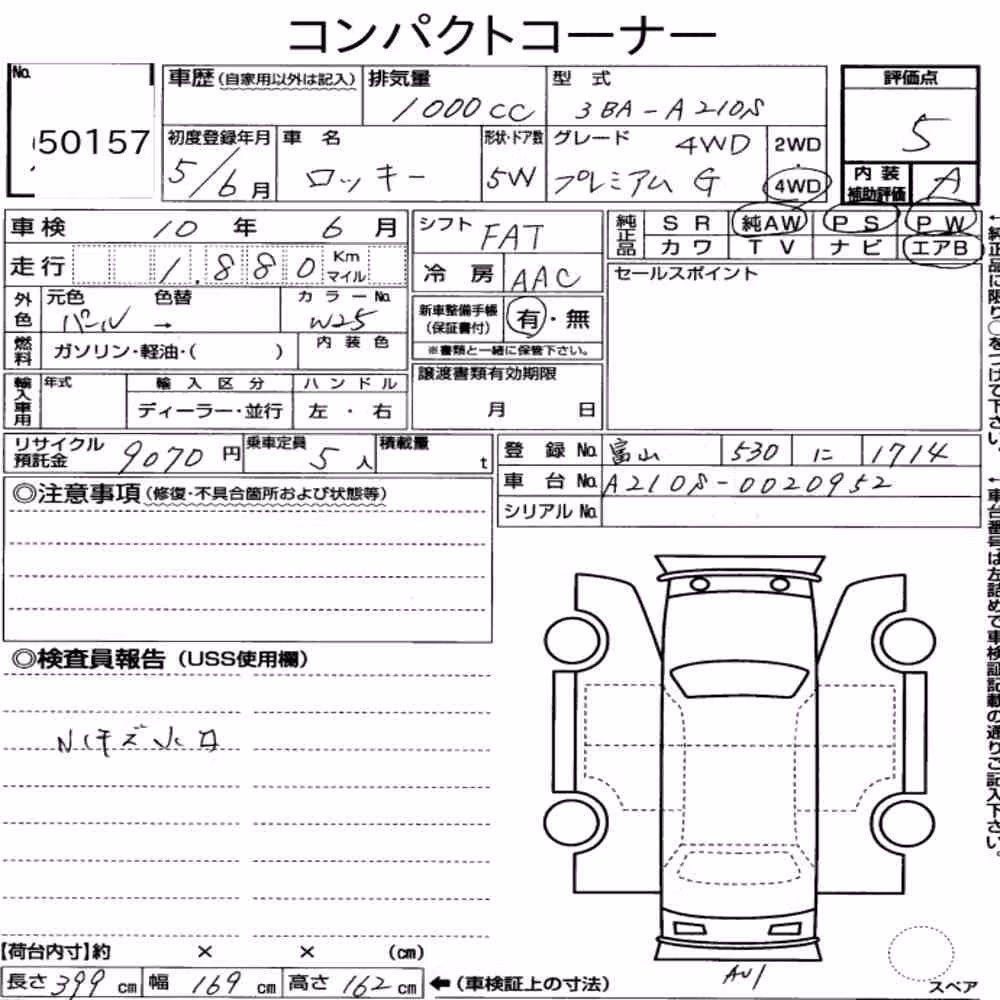 コンパクトコーナー
No. 50157
車歴 (自家用以外は記入) 排気量 1000cc 型式 3BA-A210S
評価点 5
初度登録年月 5/6月 車名 ロッキー 形状・ドア数 5W グレード 4WD プレミアム G 2WD・4WD
内装補助評価 A
車検 10年 6月
走行 1.880 Km マイル
外色 元色 パール 色替 → カラーNo. W25
燃料 ガソリン・軽油・( ) 内装色
シフト FAT
冷房 AAC
新車整備手帳 (保証書付) 有・無
※書類と一緒に保管下さい。
譲渡書類有効期限 月 日
純正品 SR 純AW PS PW
カワ TV ナビ エアB
セールスポイント
輸入車用 年式 輸入区分 ディーラー・並行 ハンドル 左・右
リサイクル預託金 9070円 乗車定員 5人 積載量 t
登録No. 富山 530 に 1714
車台No. A210S-0020952
シリアルNo.
◎注意事項 (修復・不具合箇所および状態等)
◎検査員報告 (USS使用欄)
【荷台内寸】約 × × (cm)
長さ 399 cm 幅 169 cm 高さ 162 cm ←(車検証上の寸法)
スペア
←純正品に限り○をつけて下さい。
←車台番号は左詰めで車検証記載の通りご記入下さい。